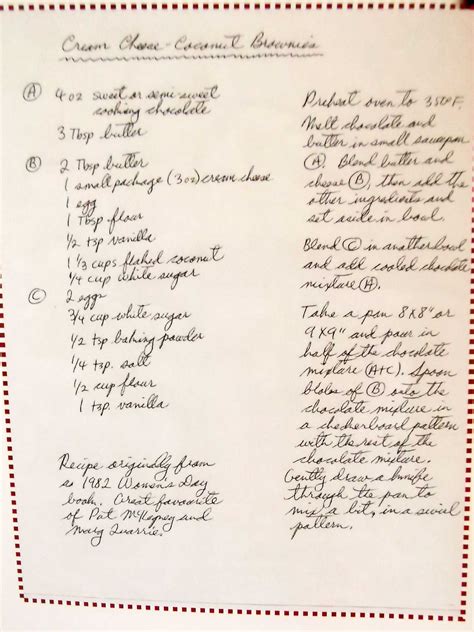 Cream Cheese-Coconut Brownies
A 4 oz sweet or semi-sweet
cooking chocolate
3 Tbsp butter
B 2 Tbsp butter
1 small package (3 oz) cream cheese
1 egg
1 Tbsp flour
1/2 tsp vanilla
1 1/3 cups flaked coconut
1/4 cup white sugar
C 2 eggs
3/4 cup white sugar
1/2 tsp baking powder
1/4 tsp. salt
1/2 cup flour
1 tsp. vanilla
Recipe originally from
a 1982 Women's Day
book. Great favourite
of Pat and
Preheat oven to 350°F.
Melt chocolate and
butter in small saucepan
A. Blend butter and
cheese B, then add the
other ingredients and
set aside in bowl.
Blend C in another bowl
and add cooled chocolate
mixture A.
Take a pan 8X8" or
9X9" and pour in
half of the chocolate
mixture (A+C). Spoon
blobs of B onto the
chocolate mixture in
a checkerboard pattern
with the rest of the
chocolate mixture.
Gently draw a knife
through the pan to
mix a bit, in a swirl
pattern.